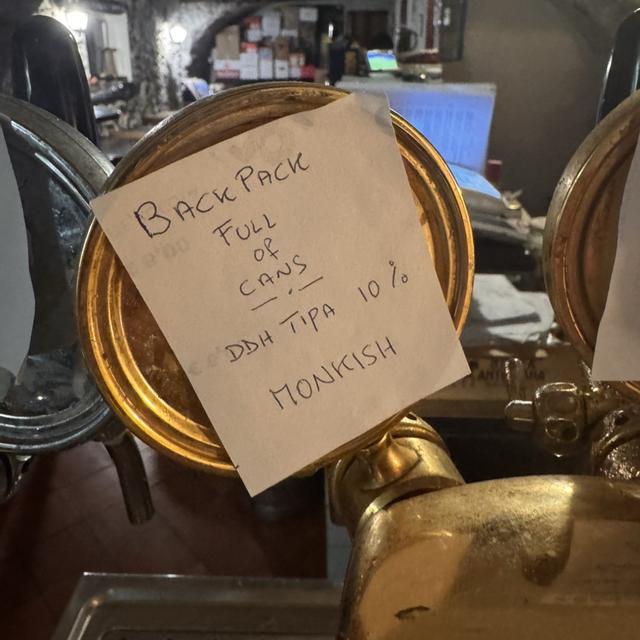 BACKPACK
FULL
OF
CANS
DDH TIPA 10%
MONKISH